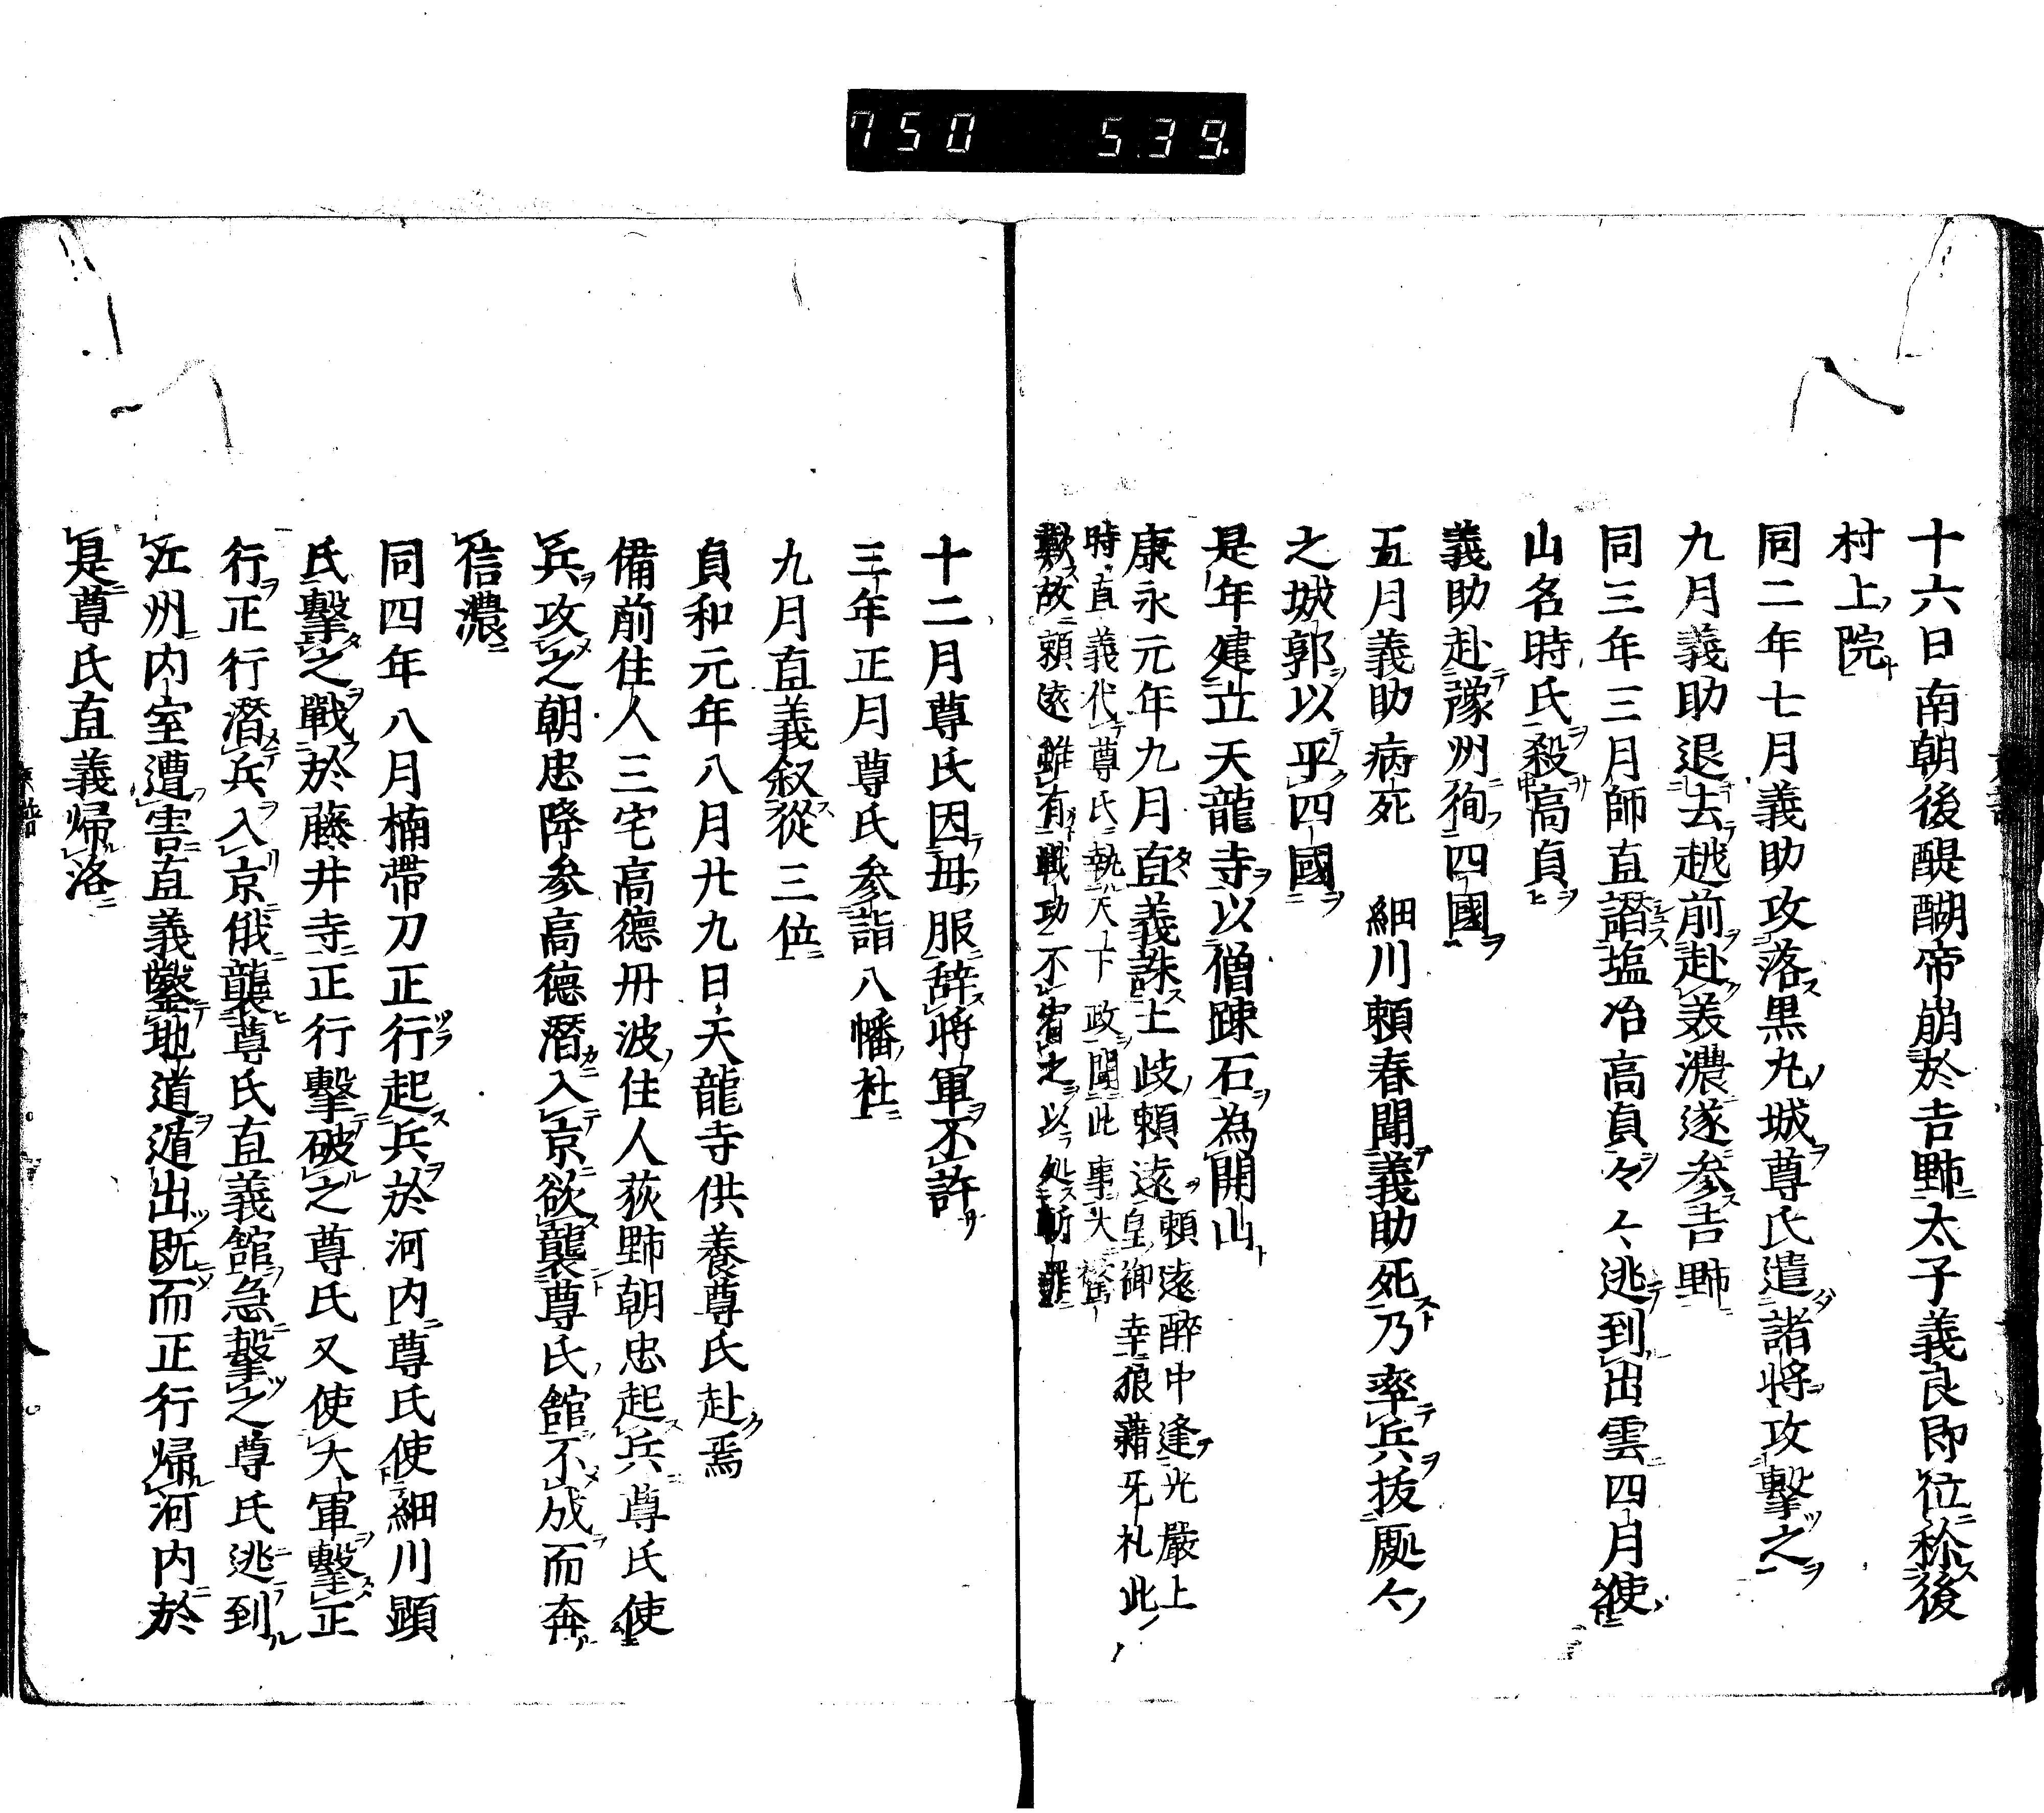 750 539
十六日南朝後醍醐帝崩於吉野太子義良即位称後
村上院
同二年七月義助攻落黒丸城尊氏遣諸将攻撃之
九月義助退去越前赴美濃遂参吉野
同三年三月師直譖塩冶高貞々々逃到出雲四月使
山名時氏殺高貞
義助赴豫州徇四國
五月義助病死 細川頼春聞義助死乃率兵抜厥々
之城郭以平四國
是年建立天龍寺以僧疎石為開山
康永元年九月直義誅土岐頼遠
頼遠醉中逢光嚴上
皇御幸狼藉无礼此
時直義代尊氏執天下政聞此事大驚
歎故頼遠雖有戰功不宥之以処斬罪
十二月尊氏因母服辞将軍不許
三年正月尊氏参詣八幡社
九月直義叙從三位
貞和元年八月廿九日天龍寺供養尊氏赴焉
備前住人三宅高德丹波住人荻野朝忠起兵尊氏使
兵攻之朝忠降参高德潛入京欲襲尊氏館不成而奔
信濃
同四年八月楠帶刀正行起兵於河内尊氏使細川顕
氏撃之戰於藤井寺正行撃破之尊氏又使大軍撃正
行正行潛兵入京俄襲尊氏直義館急撃之尊氏逃到
江州内室遭害直義鑿地道遁出既而正行帰河内於
是尊氏直義帰洛